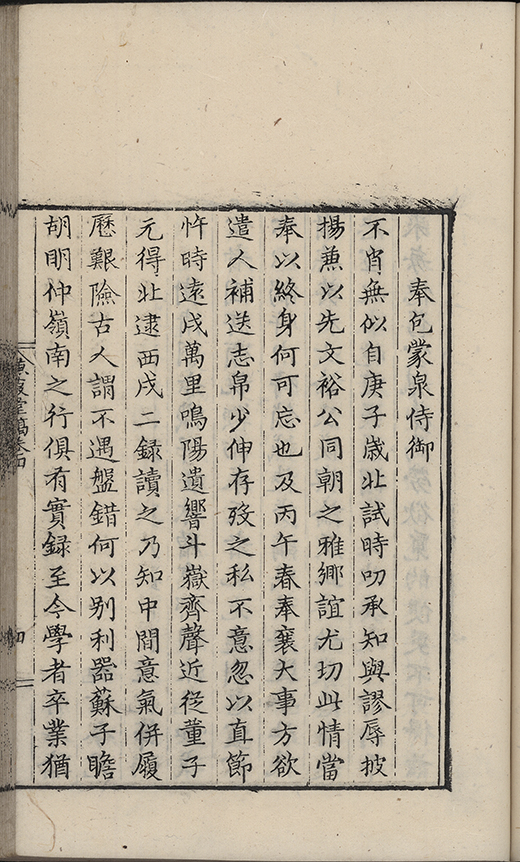 奉包蒙泉侍御
不肖無似自庚子歲北試時叨承知與謬辱披
揚蒹以先文裕公同朝之雅鄉誼尤切此情當
奉以終身何可忘也及丙午春奉襄大事方欲
遣人補送志帛少伸存歿之私不意忽以直節
忤時遠戍萬里鳴陽遺響斗嶽齊聲近從董子
元得北逮西戍二録讀之乃知中間意氣併履
歷艱險古人謂不遇盤錯何以别利器蘇子瞻
胡明仲嶺南之行俱有實録至今學者卒業猶
堂稿卷四